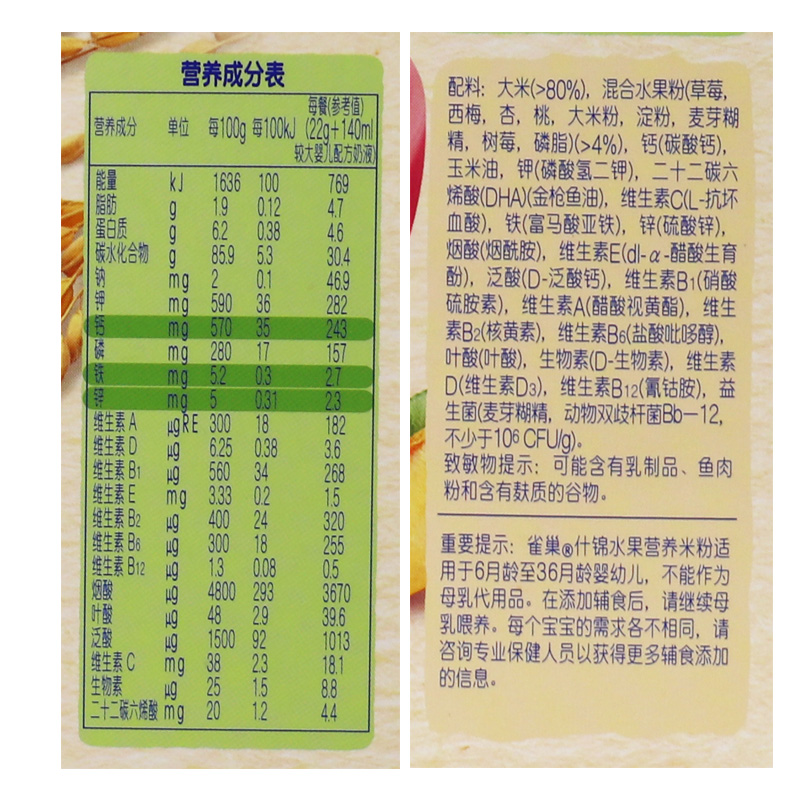 营养成分表
营养成分 单位 每100g 每100kJ 每餐(参考值)
(22g+140ml
较大婴儿配方奶液)
能量 kJ 1636 100 769
脂肪 g 1.9 0.12 4.7
蛋白质 g 6.2 0.38 4.6
碳水化合物 g 85.9 5.3 30.4
钠 mg 2 0.1 46.9
钾 mg 590 36 282
钙 mg 570 35 243
磷 mg 280 17 157
铁 mg 5.2 0.3 2.7
锌 mg 5 0.31 2.3
维生素 A μgRE 300 18 182
维生素 D μg 6.25 0.38 3.6
维生素 B1 μg 560 34 268
维生素 E mg 3.33 0.2 1.5
维生素 B2 μg 400 24 320
维生素 B6 μg 300 18 255
维生素 B12 μg 1.3 0.08 0.5
烟酸 μg 4800 293 3670
叶酸 μg 48 2.9 39.6
泛酸 μg 1500 92 1013
维生素 C mg 38 2.3 18.1
生物素 μg 25 1.5 8.8
二十二碳六烯酸 mg 20 1.2 4.4
配料: 大米(>80%), 混合水果粉(草莓,
西梅, 杏, 桃, 大米粉, 淀粉, 麦芽糊
精, 树莓, 磷脂)(>4%), 钙(碳酸钙),
玉米油, 钾(磷酸氢二钾), 二十二碳六
烯酸(DHA)(金枪鱼油), 维生素C(L-抗坏
血酸), 铁(富马酸亚铁), 锌(硫酸锌),
烟酸(烟酰胺), 维生素E(dl-α-醋酸生育
酚), 泛酸(D-泛酸钙), 维生素B1(硝酸
硫胺素), 维生素A(醋酸视黄酯), 维生
素B2(核黄素), 维生素B6(盐酸吡哆醇),
叶酸(叶酸), 生物素(D-生物素), 维生素
D(维生素D3), 维生素B12(氰钴胺), 益
生菌(麦芽糊精, 动物双歧杆菌Bb-12,
不少于10⁶ CFU/g)。
致敏物提示: 可能含有乳制品、鱼肉
粉和含有麸质的谷物。
重要提示: 雀巢®什锦水果营养米粉适
用于6月龄至36月龄婴幼儿, 不能作为
母乳代用品。在添加辅食后, 请继续母
乳喂养。每个宝宝的需求各不相同, 请
咨询专业保健人员以获得更多辅食添加
的信息。